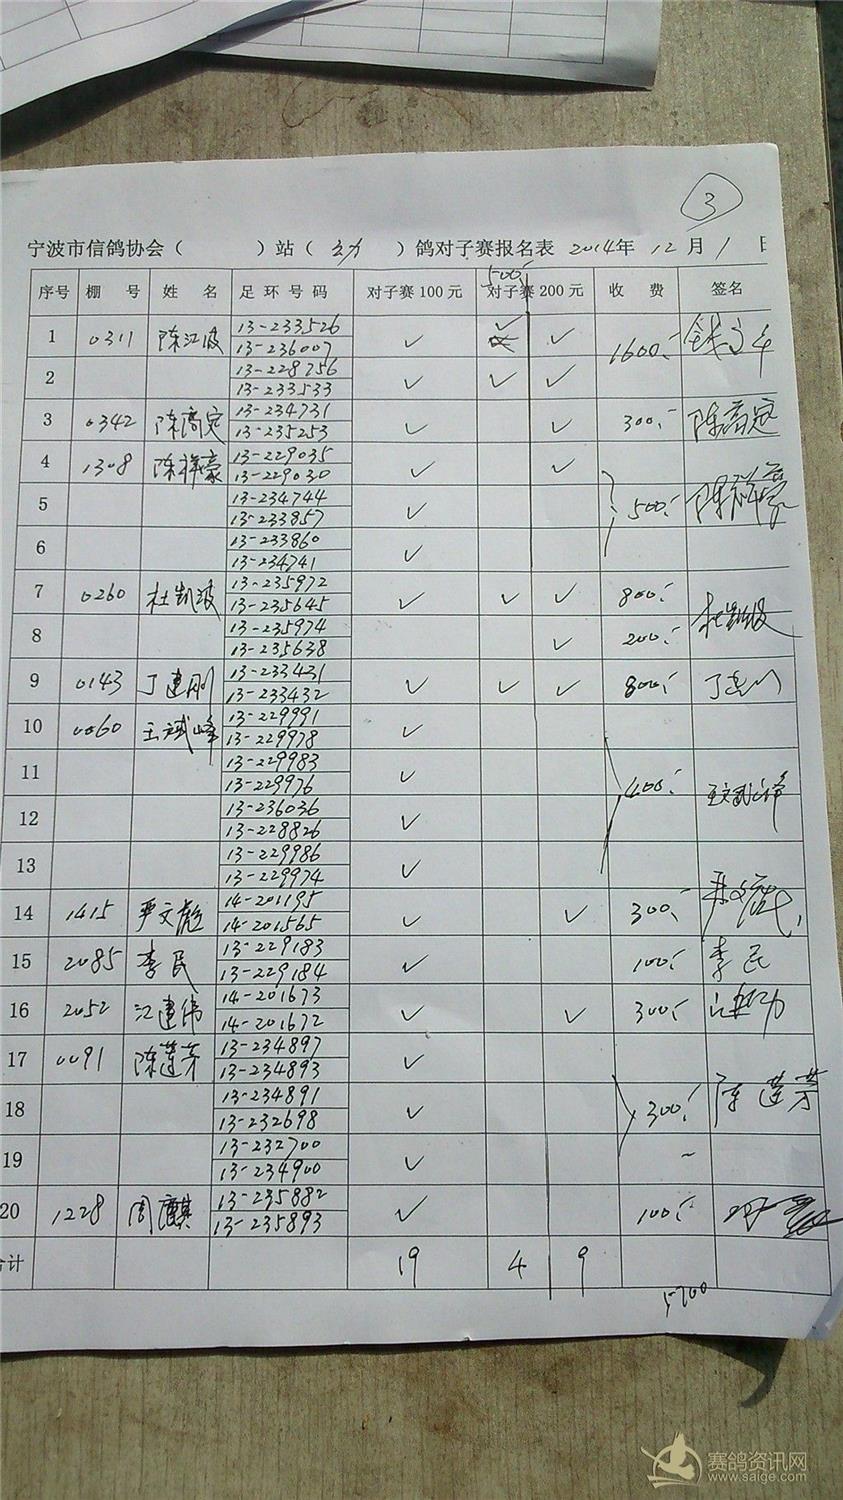 3
宁波市信鸽协会（ ）站（ ）鸽对子赛报名表 2014年 12月 1日
序号 棚 号 姓 名 足 环 号 码 对子赛 100 元 500- 对子赛 200 元 收 费 签名
1 0311 陈江波 13-233526 ✓ ✓ ✓ 1600-
13-236007
2 13-228756 ✓ ✓ ✓
13-233533
3 0342 陈高定 13-234731 ✓ ✓ 300- 陈高定
13-235253
4 1308 陈祥豪 13-229035 ✓ ✓
13-229030
5 13-234744 ✓ 500- 陈祥豪
13-233857
6 13-233860 ✓
13-234741
7 0260 杜凯波 13-235972 ✓ ✓ ✓ 800- 杜凯波
13-235645
8 13-235974 ✓ 200-
13-235638
9 0143 丁建刚 13-233431 ✓ ✓ ✓ 800-
13-233432
10 0060 王斌峰 13-229991 ✓
13-229978
11 13-229983 ✓ 400-
13-229976
12 13-236036 ✓
13-228826
13 13-229986 ✓
13-229974
14 1415 严文彪 14-201195 ✓ ✓ 300-
14-201565
15 2085 李民 13-229183 ✓ 100- 李民
13-229184
16 2052 江建伟 14-201673 ✓ ✓ 300-
14-201672
17 0091 陈莲芳 13-234897 ✓
13-234893
18 13-234891 ✓ 300- 陈莲芳
13-232698
19 13-232700 ✓
13-234900
20 1228 周麒 13-235882 ✓ 100-
13-235893
合计 19 4 9
5700
赛鸽资讯网
www.saige.com